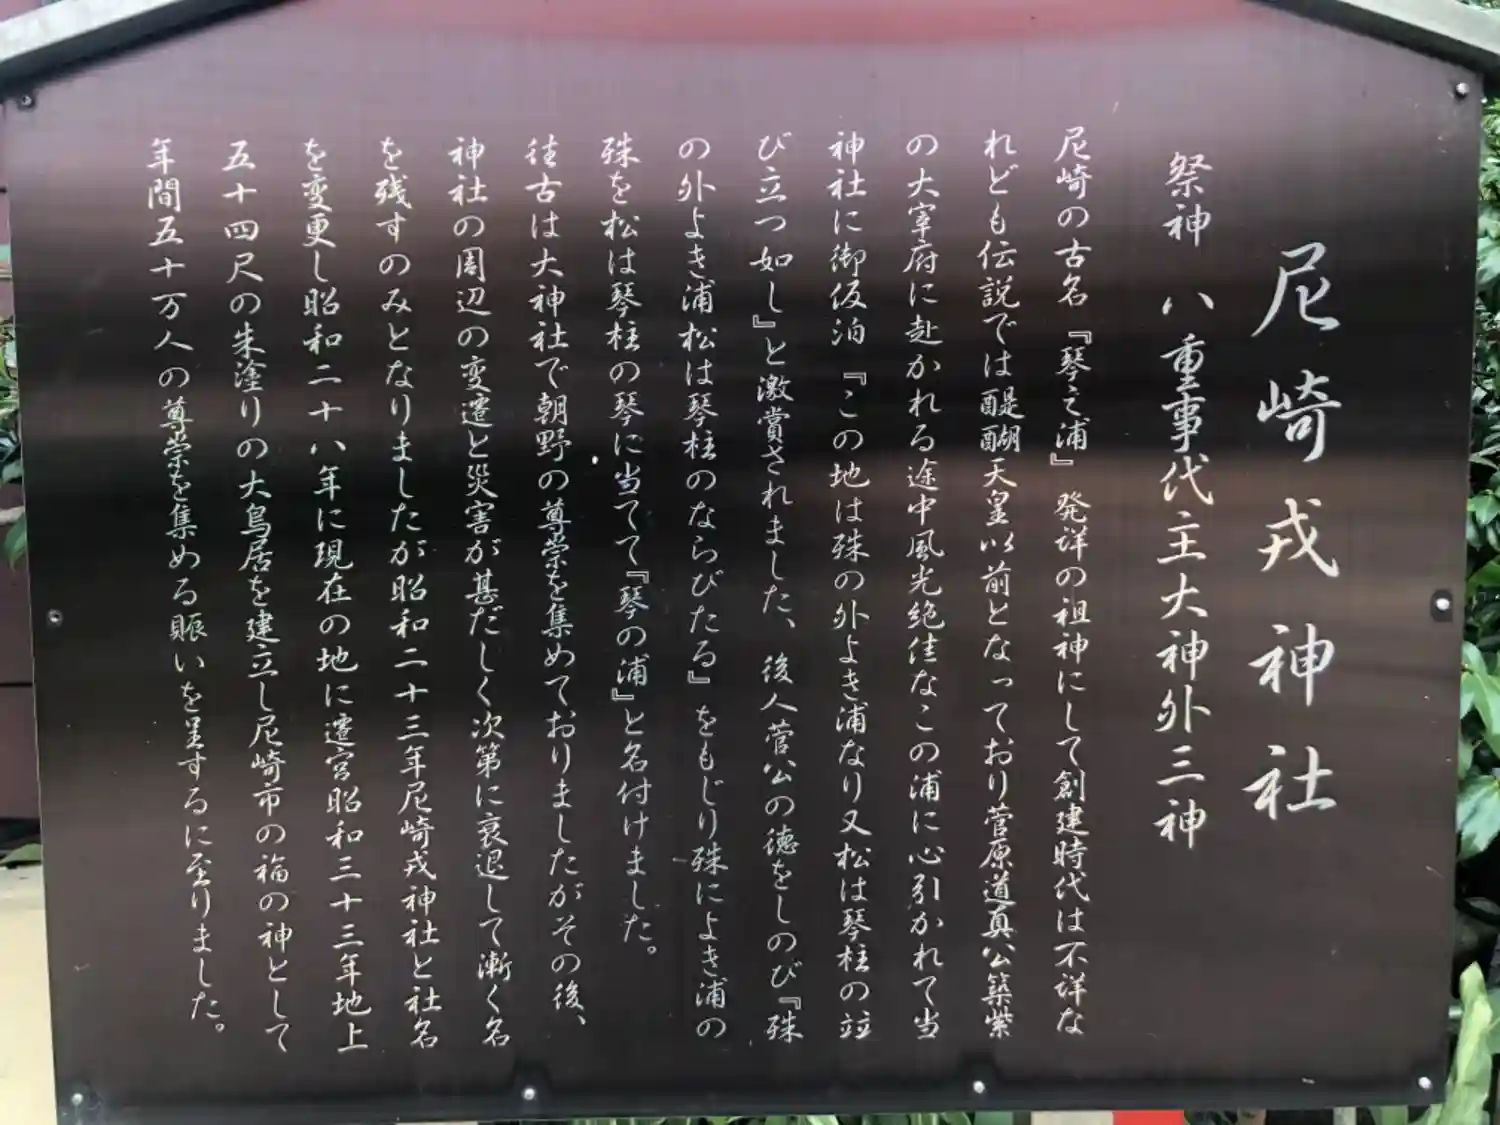 尼崎戎神社
祭神　八重事代主大神外三神
尼崎の古名『琴之浦』発祥の祖神にして創建時代は不詳な
れども伝説では醍醐天皇以前となっており菅原道真公築紫
の大宰府に赴かれる途中風光絶佳なこの浦に心引かれて当
神社に御仮泊『この地は殊の外よき浦なり又松は琴柱の竝
び立つ如し』と激賞されました、後人菅公の徳をしのび『殊
の外よき浦松は琴柱のならびたる』をもじり殊によき浦の
殊を松は琴柱の琴に当てて『琴の浦』と名付けました。
往古は大神社で朝野の尊崇を集めておりましたがその後、
神社の周辺の変遷と災害が甚だしく次第に衰退して漸く名
を残すのみとなりましたが昭和二十三年尼崎戎神社と社名
を変更し昭和二十八年に現在の地に遷宮昭和三十三年地上
五十四尺の朱塗りの大鳥居を建立し尼崎市の福の神として
年間五十万人の尊崇を集める賑いを呈するに至りました。